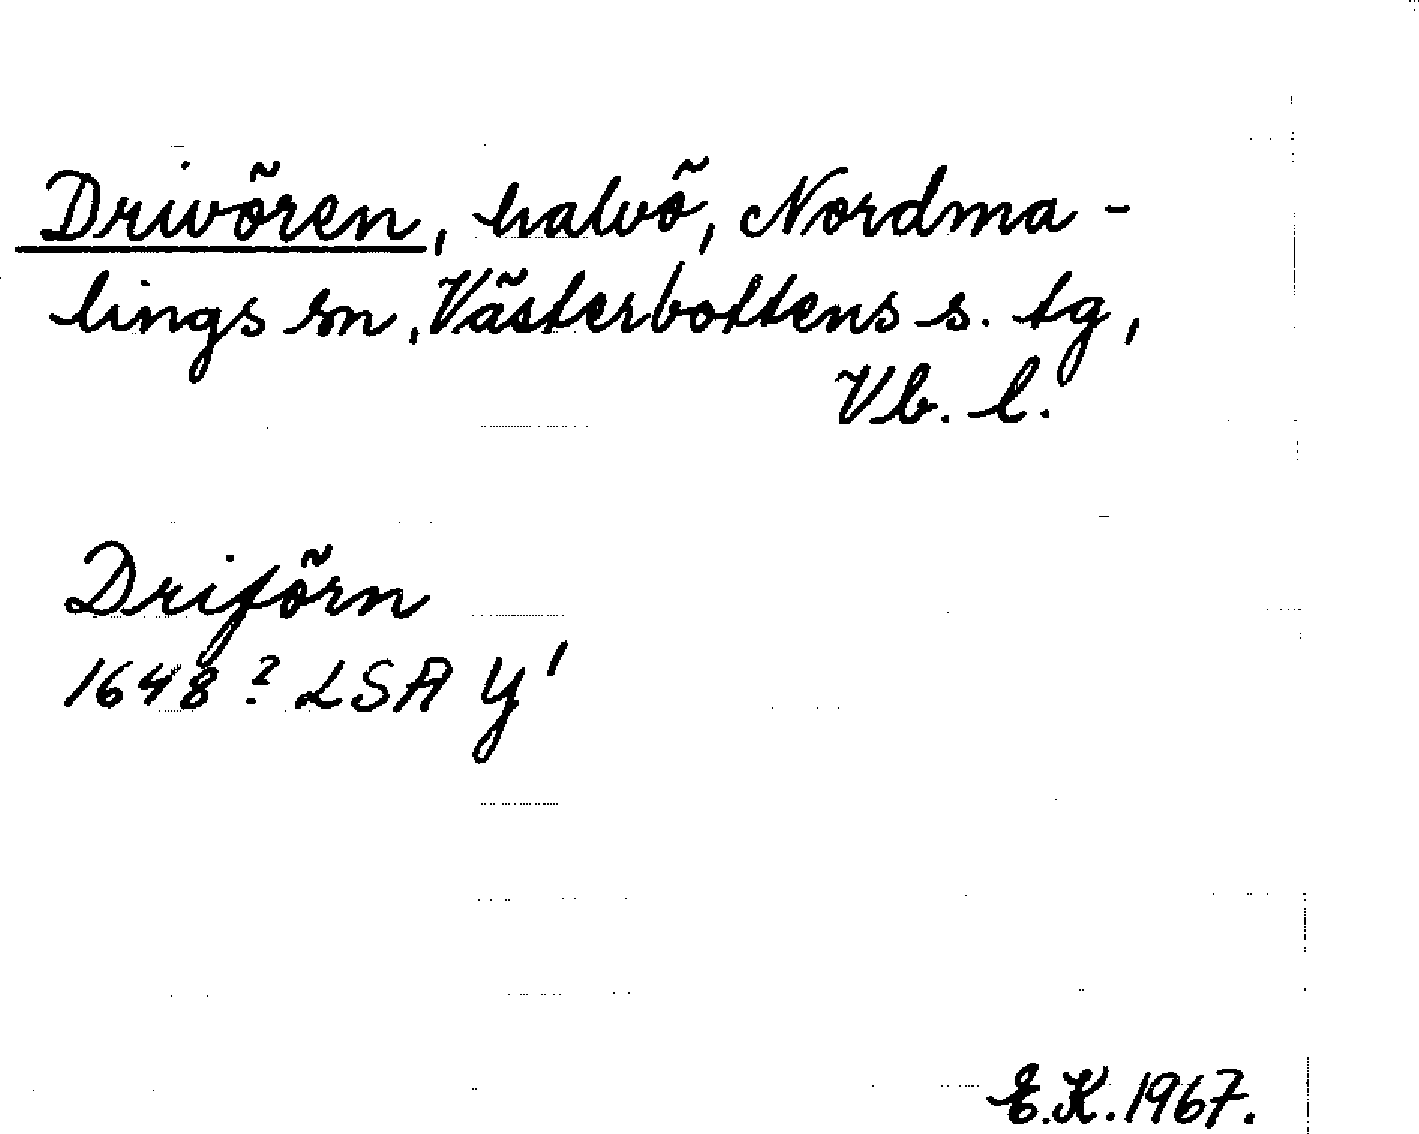 Drivören, halvö, Nordma-
lings sn, Västerbottens s. tg,
Vb. l.
Driförn
1648? LSA Y'
E.K. 1967.